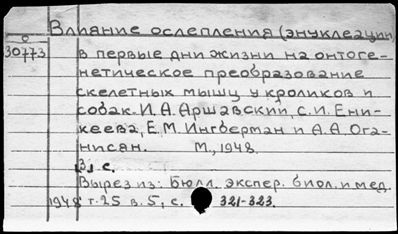 Влияние ослепления (энуклеации)
О
30773
в первые дни жизни на онтоге-
нетическое преобразование
скелетных мышц у кроликов и
собак. И.А. Аршавский, С.И. Ени-
кеева, Е.М. Ингберман и А.А. Ога-
нисян. М., 1948.
3 с.
Вырез из: Бюлл. экспер. биол. и мед.
1948 т. 25 в. 5, с. 321-323.